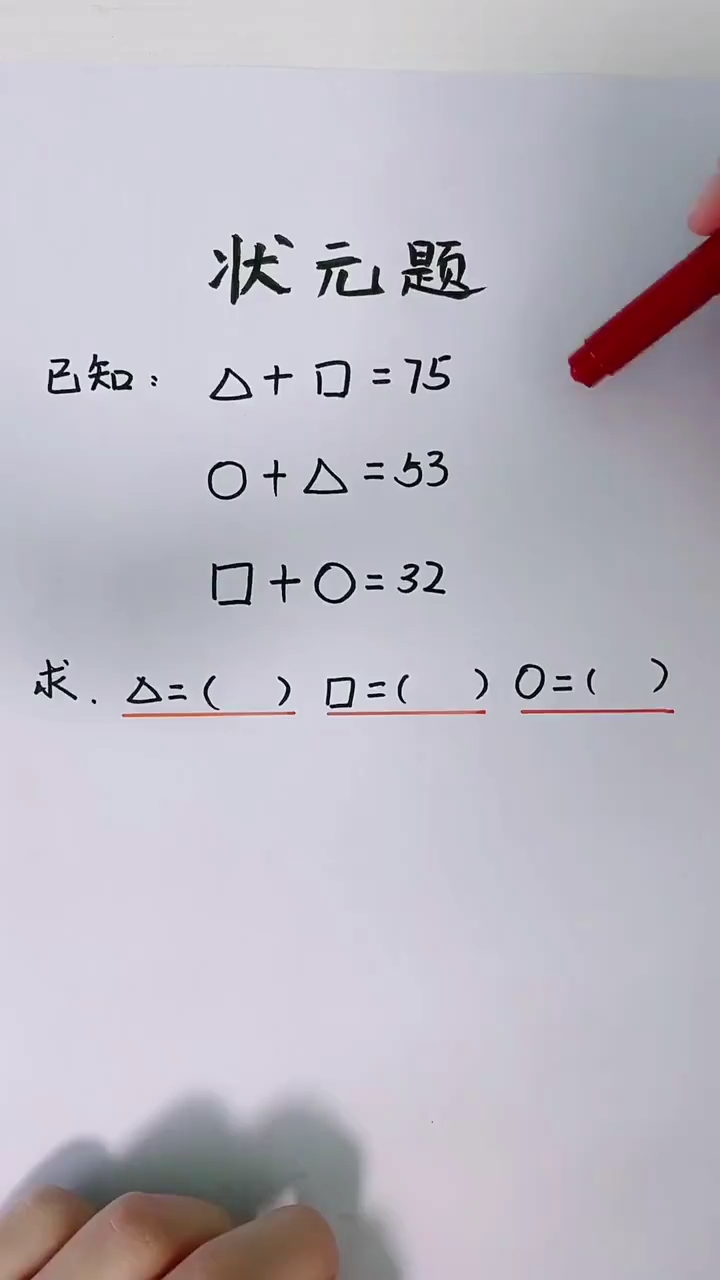 状元题
已知： △+□=75
○+△=53
□+○=32
求. △=( ) □=( ) ○=( )